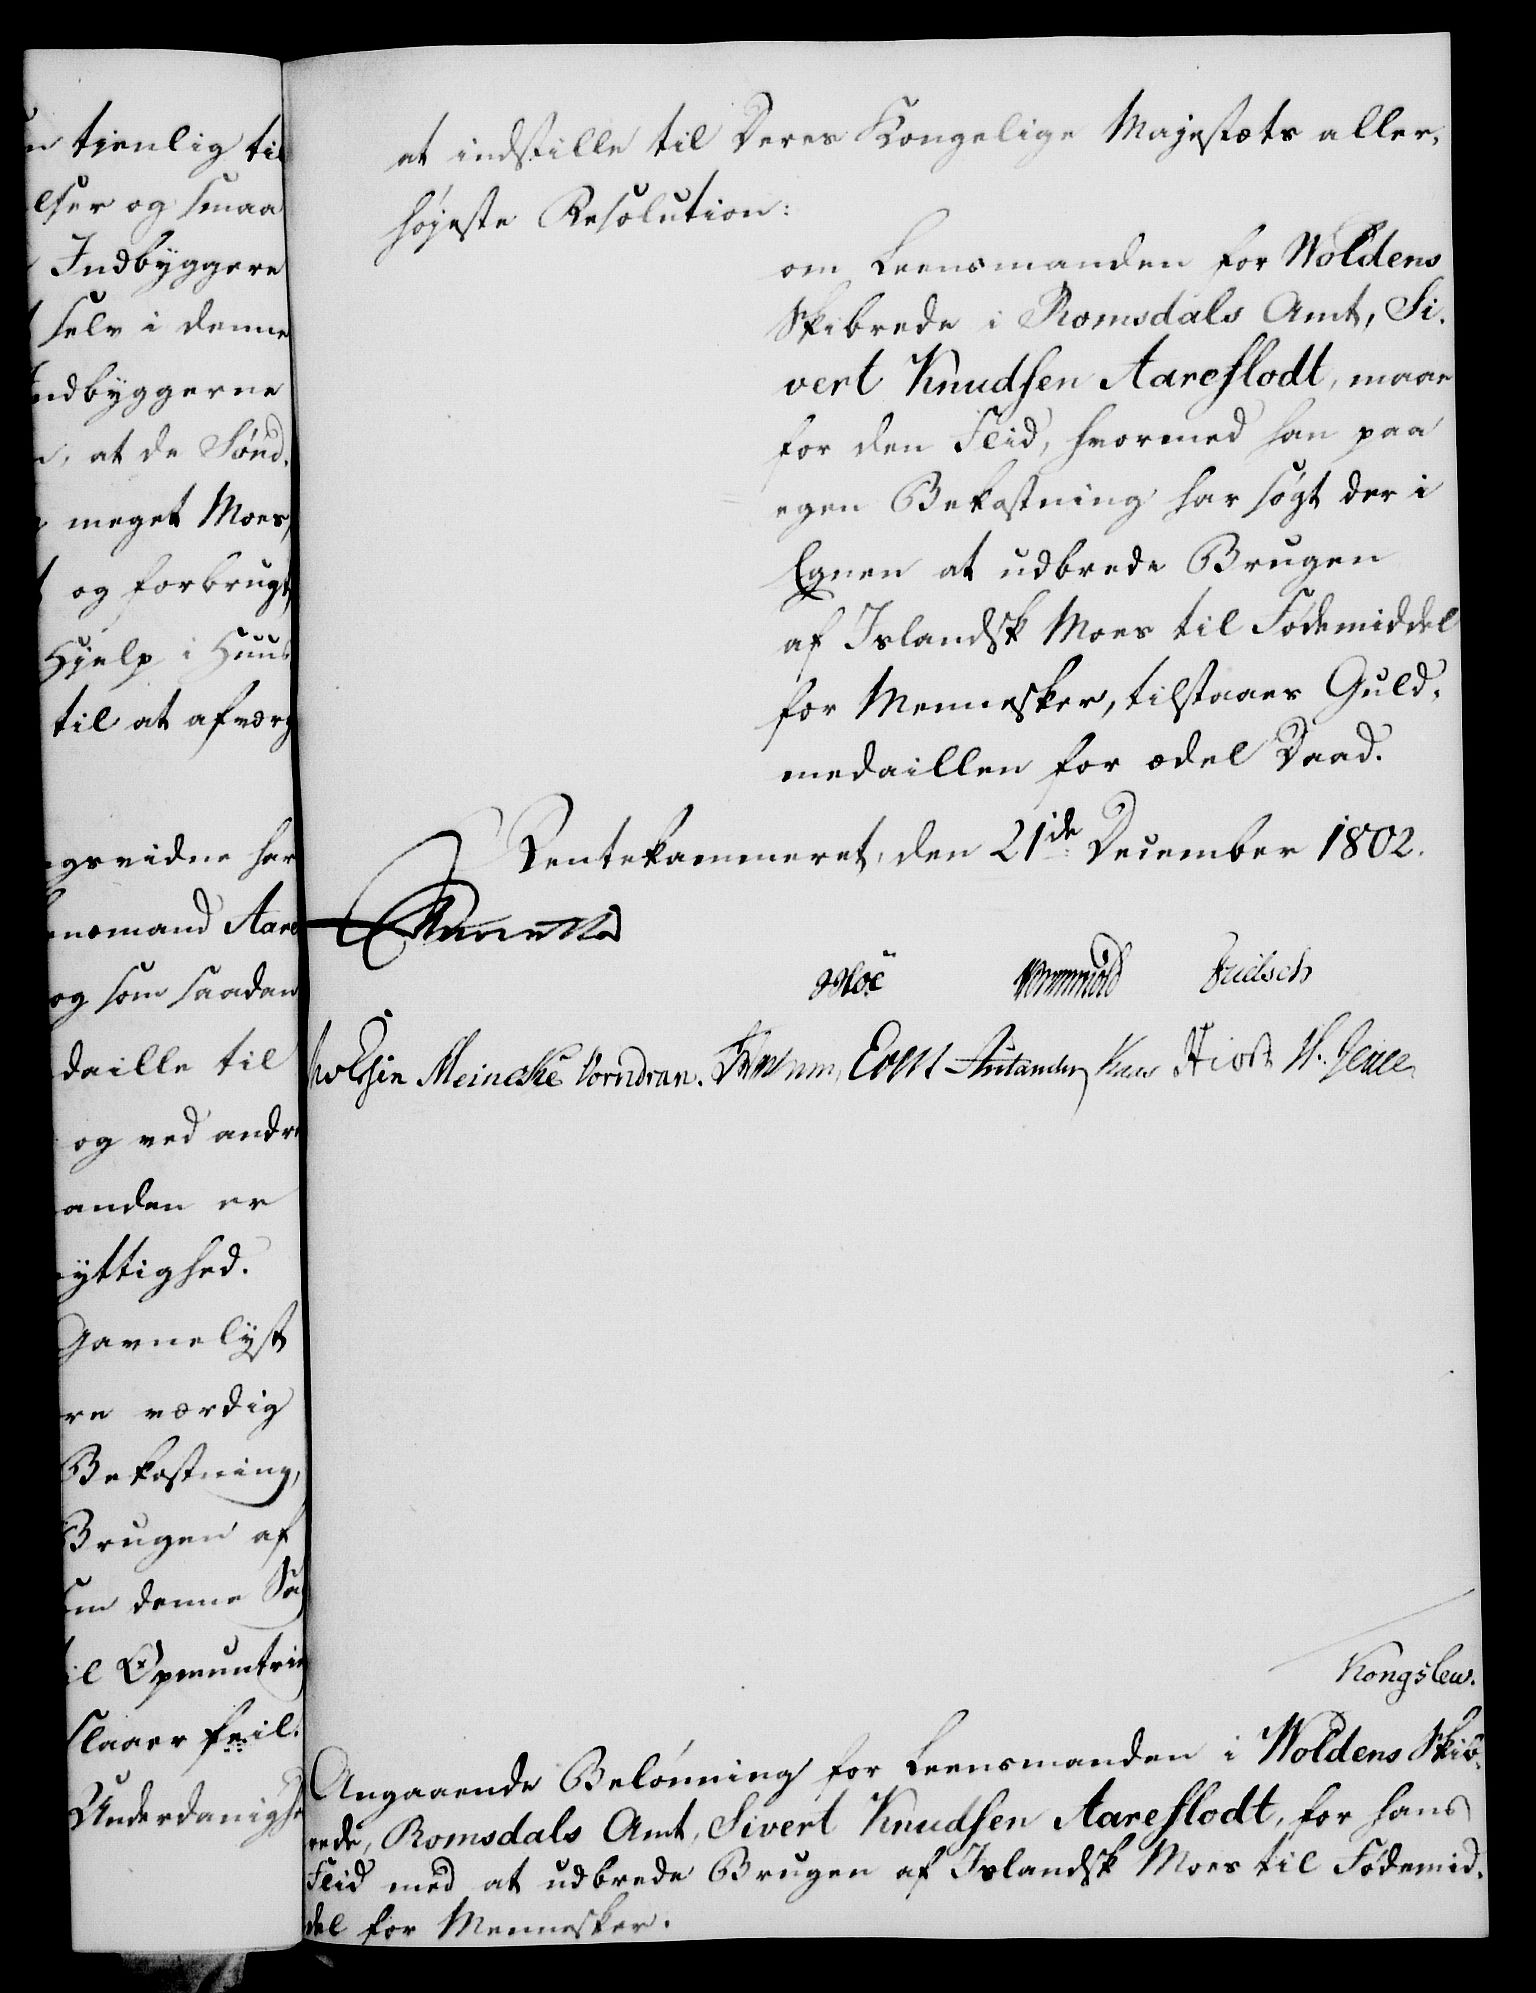 n tienlig til
elser og smaa
Indbyggere
selv i denne
Indbyggerne
n, at de Sönd,
meget Moes,
og forbrugt,
Hjelp i Huus
til at afværg
gsvidne har
ensmand Aare
og som saadan
daille til
og ved andre
anden er
yttighed.
Gavnelyst
re værdig
Bekostning,
Brugen af
denne Sag
il Opmuntrin
slaaer feil.
Underdanigh
at indstille til Deres Kongelige Majestæts aller-
höjeste Resolution:
om Leensmanden for Woldens
Skibrede i Romsdals Amt, Si-
vert Knudsen Aareflodt, maae
for den Flid, hvormed han paa
egen Bekostning har sögt der i
Egnen at udbrede Brugen
af Islandsk Moes til Födemiddel
for Mennesker, tilstaaes Guld-
medaillen for ædel Daad.
Rentekammeret, den 21de December 1802.
Meincke Vorndran.
Kongslew.
Angaaende Belönning for Leensmanden i Woldens Skib-
rede, Romsdals Amt, Sivert Knudsen Aareflodt, for hans
Flid med at udbrede Brugen af Islandsk Moes til Födemid-
del for Mennesker.